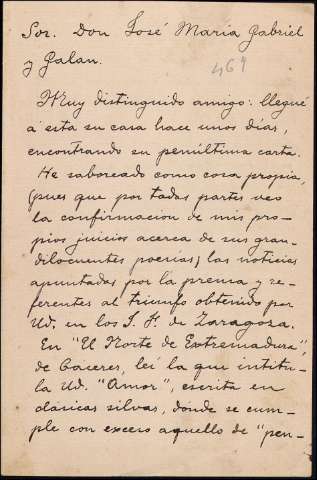 Sor. Don José María Gabriel
y Galan.
469
Muy distinguido amigo: llegué
a esta su casa hace unos días,
encontrando su penúltima carta.
He saboreado como cosa propia,
(pues que por todas partes veo
la confirmacion de mis pro-
pios juicios acerca de sus gran-
dilocuentes poesías) las noticias
apuntadas por la prensa y re-
ferentes al triunfo obtenido por
Ud. en los J. F. de Zaragoza.
En "El Norte de Extremadura",
de Cáceres, leí la que intitu-
la Ud. "Amor", escrita en
clásicas silvas, donde se cum-
ple con exceso aquello de "pen-